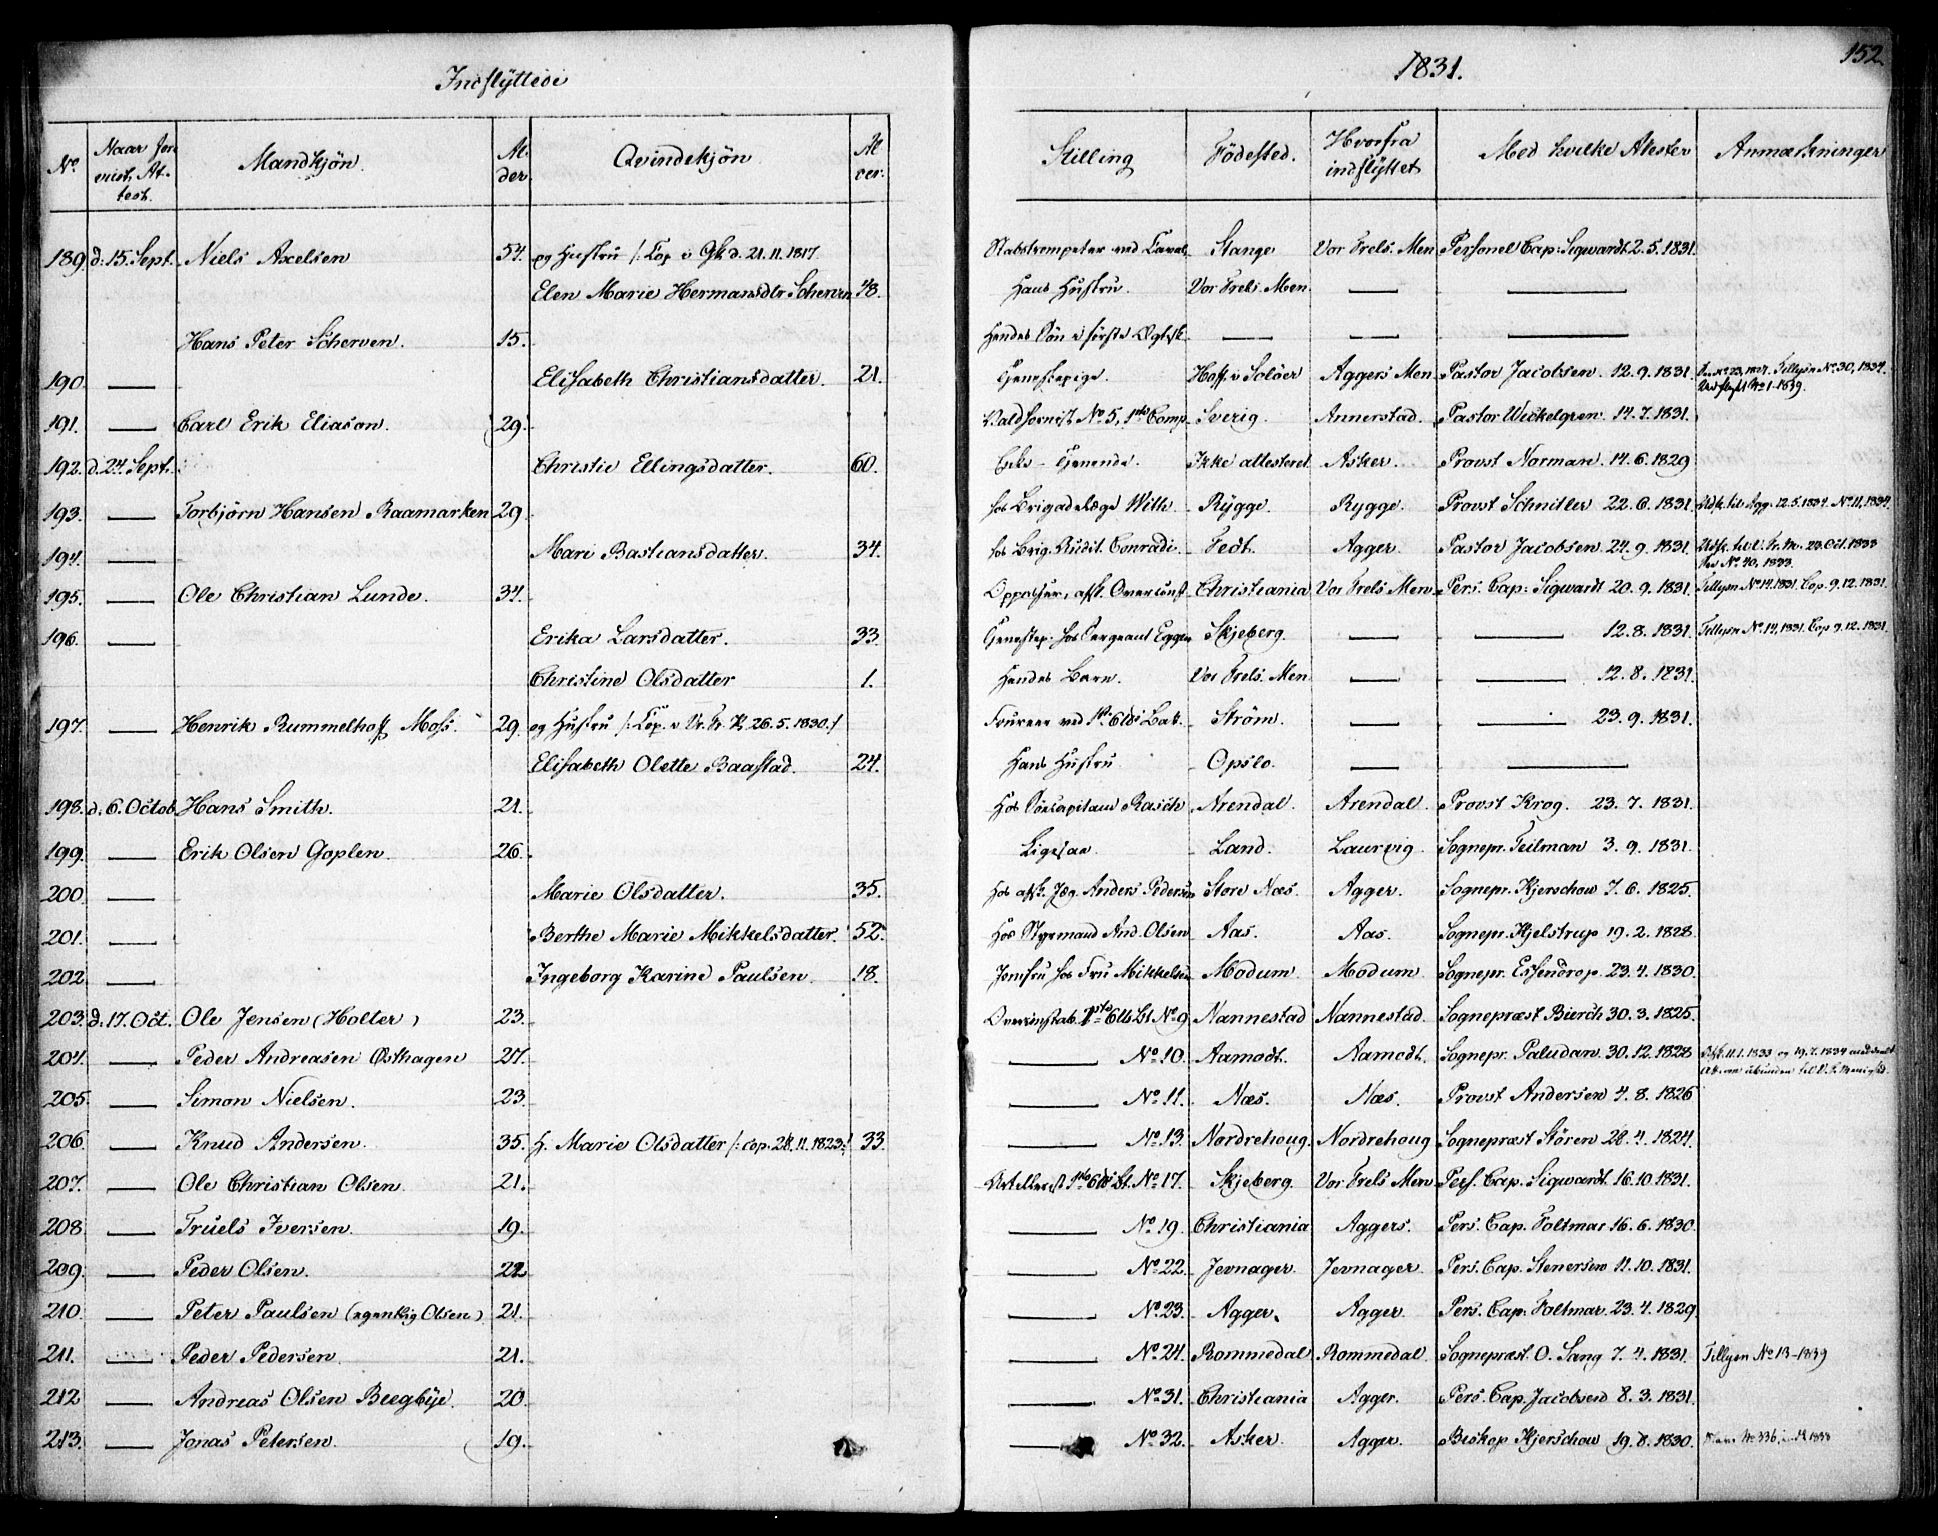 Indflyttede
1831.
152.
No Naar forevist, Attest. Mandkjön. Alder Qvindekjön Alder. Stilling Födested. Hvorfra indflyttet Med hvilke Atester Anmærkninger
189. d. 15. Sept. Niels Axelsen 54. og Hustru /: Cop. v. Gk d. 21.11.1817 Stabstrompeter ved Caval. Stange Vor Frels. Men Personel Cap: Sigwardt 2.5.1831.
Elen Marie Hermansdtr Scherven 48. Hans Hustru. Vor Frels. Men. — —
Hans Peter Scherven. 15. Hendes Sön i förste Ægtsk. — — —
190. — Elisabeth Christiansdatter. 21. Tjenestepige. Hoff. v. Solöer Aggers Men Pastor Jacobsen. 12.9.1831. Tillysn No 30, 1834.
No 1-1839.
191. — Carl Erik Eliason. 29. Valdhornist No 5, 1ste Comp. Sverig. Annerstad. Pastor Wickelgren. 14.7.1831.
192. d. 24. Sept. Christie Ellingsdatter. 60. Enke - Tjenende. Ikke attesteret Asker. Provst Norman. 14.6.1829
193. — Torbjörn Hansen Raamarken 29. hos Brigadelæge With Rygge. Rygge. Provst Schnitler 22.6.1831. Udsk. til Agg. 12.5.1834. No 11, 1834.
194. — Mari Bastiansdatter. 34. hos Brig. Audit. Conradi. Fedt. Agger. Pastor Jacobsen. 24.9.1831. Udsk. til V. Fr. M. 23. Oct. 1833
No 40, 1833.
195. — Ole Christian Lunde. 34. Oppasser, afsk. Overconst. Christiania Vor Frels Men. Pers. Cap: Sigwardt 20.9.1831. Tillysn No 14. 1831. Cop. 9.12.1831.
196. — Erika Larsdatter. 33. Tjenestep. hos Sergeant Eggen Skjeberg. — — 12.8.1831. Tillysn No 14, 1831. Cop 9.12.1831.
Christine Olsdatter 1. Hendes Barn. Vor Frels. Men — — 12.8.1831.
197. — Henrik Rummelhoff Moss. 29. og Hustru /: Cop. v. Vr. Fr. K. 26.5.1830./ Foureer ved 1ste Batt. Ström. — — 23.9.1831.
Elisabeth Olette Baastad. 24. Hans Hustru Opslo. — —
198. d. 6. Octob. Hans Smith. 21. Hos Söecapitain Rasch Arendal. Arendal. Provst Krog. 23.7.1831.
199. — Erik Olsen Goplen. 26. Ligesaa. Land. Laurvig. Sognepr. Teilman 3.9.1831.
200. — Marie Olsdatter. 35. hos afsk. Jæg. Anders Pedersen Store Næs. Agger. Sognepr. Kjerschow 7.6.1825.
201. — Berthe Marie Mikkelsdatter. 52. Hos Styrmand And. Olsen Aas. Aas. Sognepr. Hjelstrup 19.2.1828.
202. — Ingeborg Karine Paulsen. 18. Jomfru hos Fru Mikkelsen Modum. Modum. Sognepr. Essendrop. 23.4.1830.
203. d. 17. Oct. Ole Jensen (Holter) 23. Overconstab. 1ste Bt. No 9 Nannestad Nannestad. Sognepræst Bierch 30.3.1825.
204. — Peder Andreasen Østhagen 27. — No 10. Aamodt. Aamodt. Sognepr. Paludan. 30.12.1828 11.1.1833 og 19.7.1834
205. — Simon Nielsen. 23. — No 11. Næs. Næs. Provst Andersen 4.8.1826
206. — Knud Andersen. 35. H. Marie Olsdatter /: cop. 28.11.1823:/ 33. — No 13. Nordrehoug. Nordrehoug Sognepræst Stören 28.4.1824.
207. — Ole Christian Olsen. 21. Artillerist 1ste Bt. No 17. Skjeberg Vor Frels Men Pers. Cap. Sigwardt. 16.10.1831.
208. — Truels Iversen. 19. — No 19. Christiania Aggers. Pers. Cap. Foltmar 16.6.1830.
209. — Peder Olsen. 22 — No 22. Jevnager. Jevnager. Pers. Cap. Stenersen 11.10.1831.
210. — Peter Paulsen (egentlig Olsen) 21. — No 23. Agger. Agger. Pers. Cap: Foltmar. 23.4.1829.
211. — Peder Pedersen. 21. — No 24. Rommedal Rommedal. Sognepræst. O. Sang 7.4.1831. Tillysn No 13-1839
212. — Andreas Olsen Beegbye. 20. — No 31. Christiania Agger. Pers. Cap. Jacobsen 8.3.1831.
213. — Jonas Petersen. 19. — No 32. Asker. Agger. Biskop Kjerschow 19.8.1830. No 336, 1833